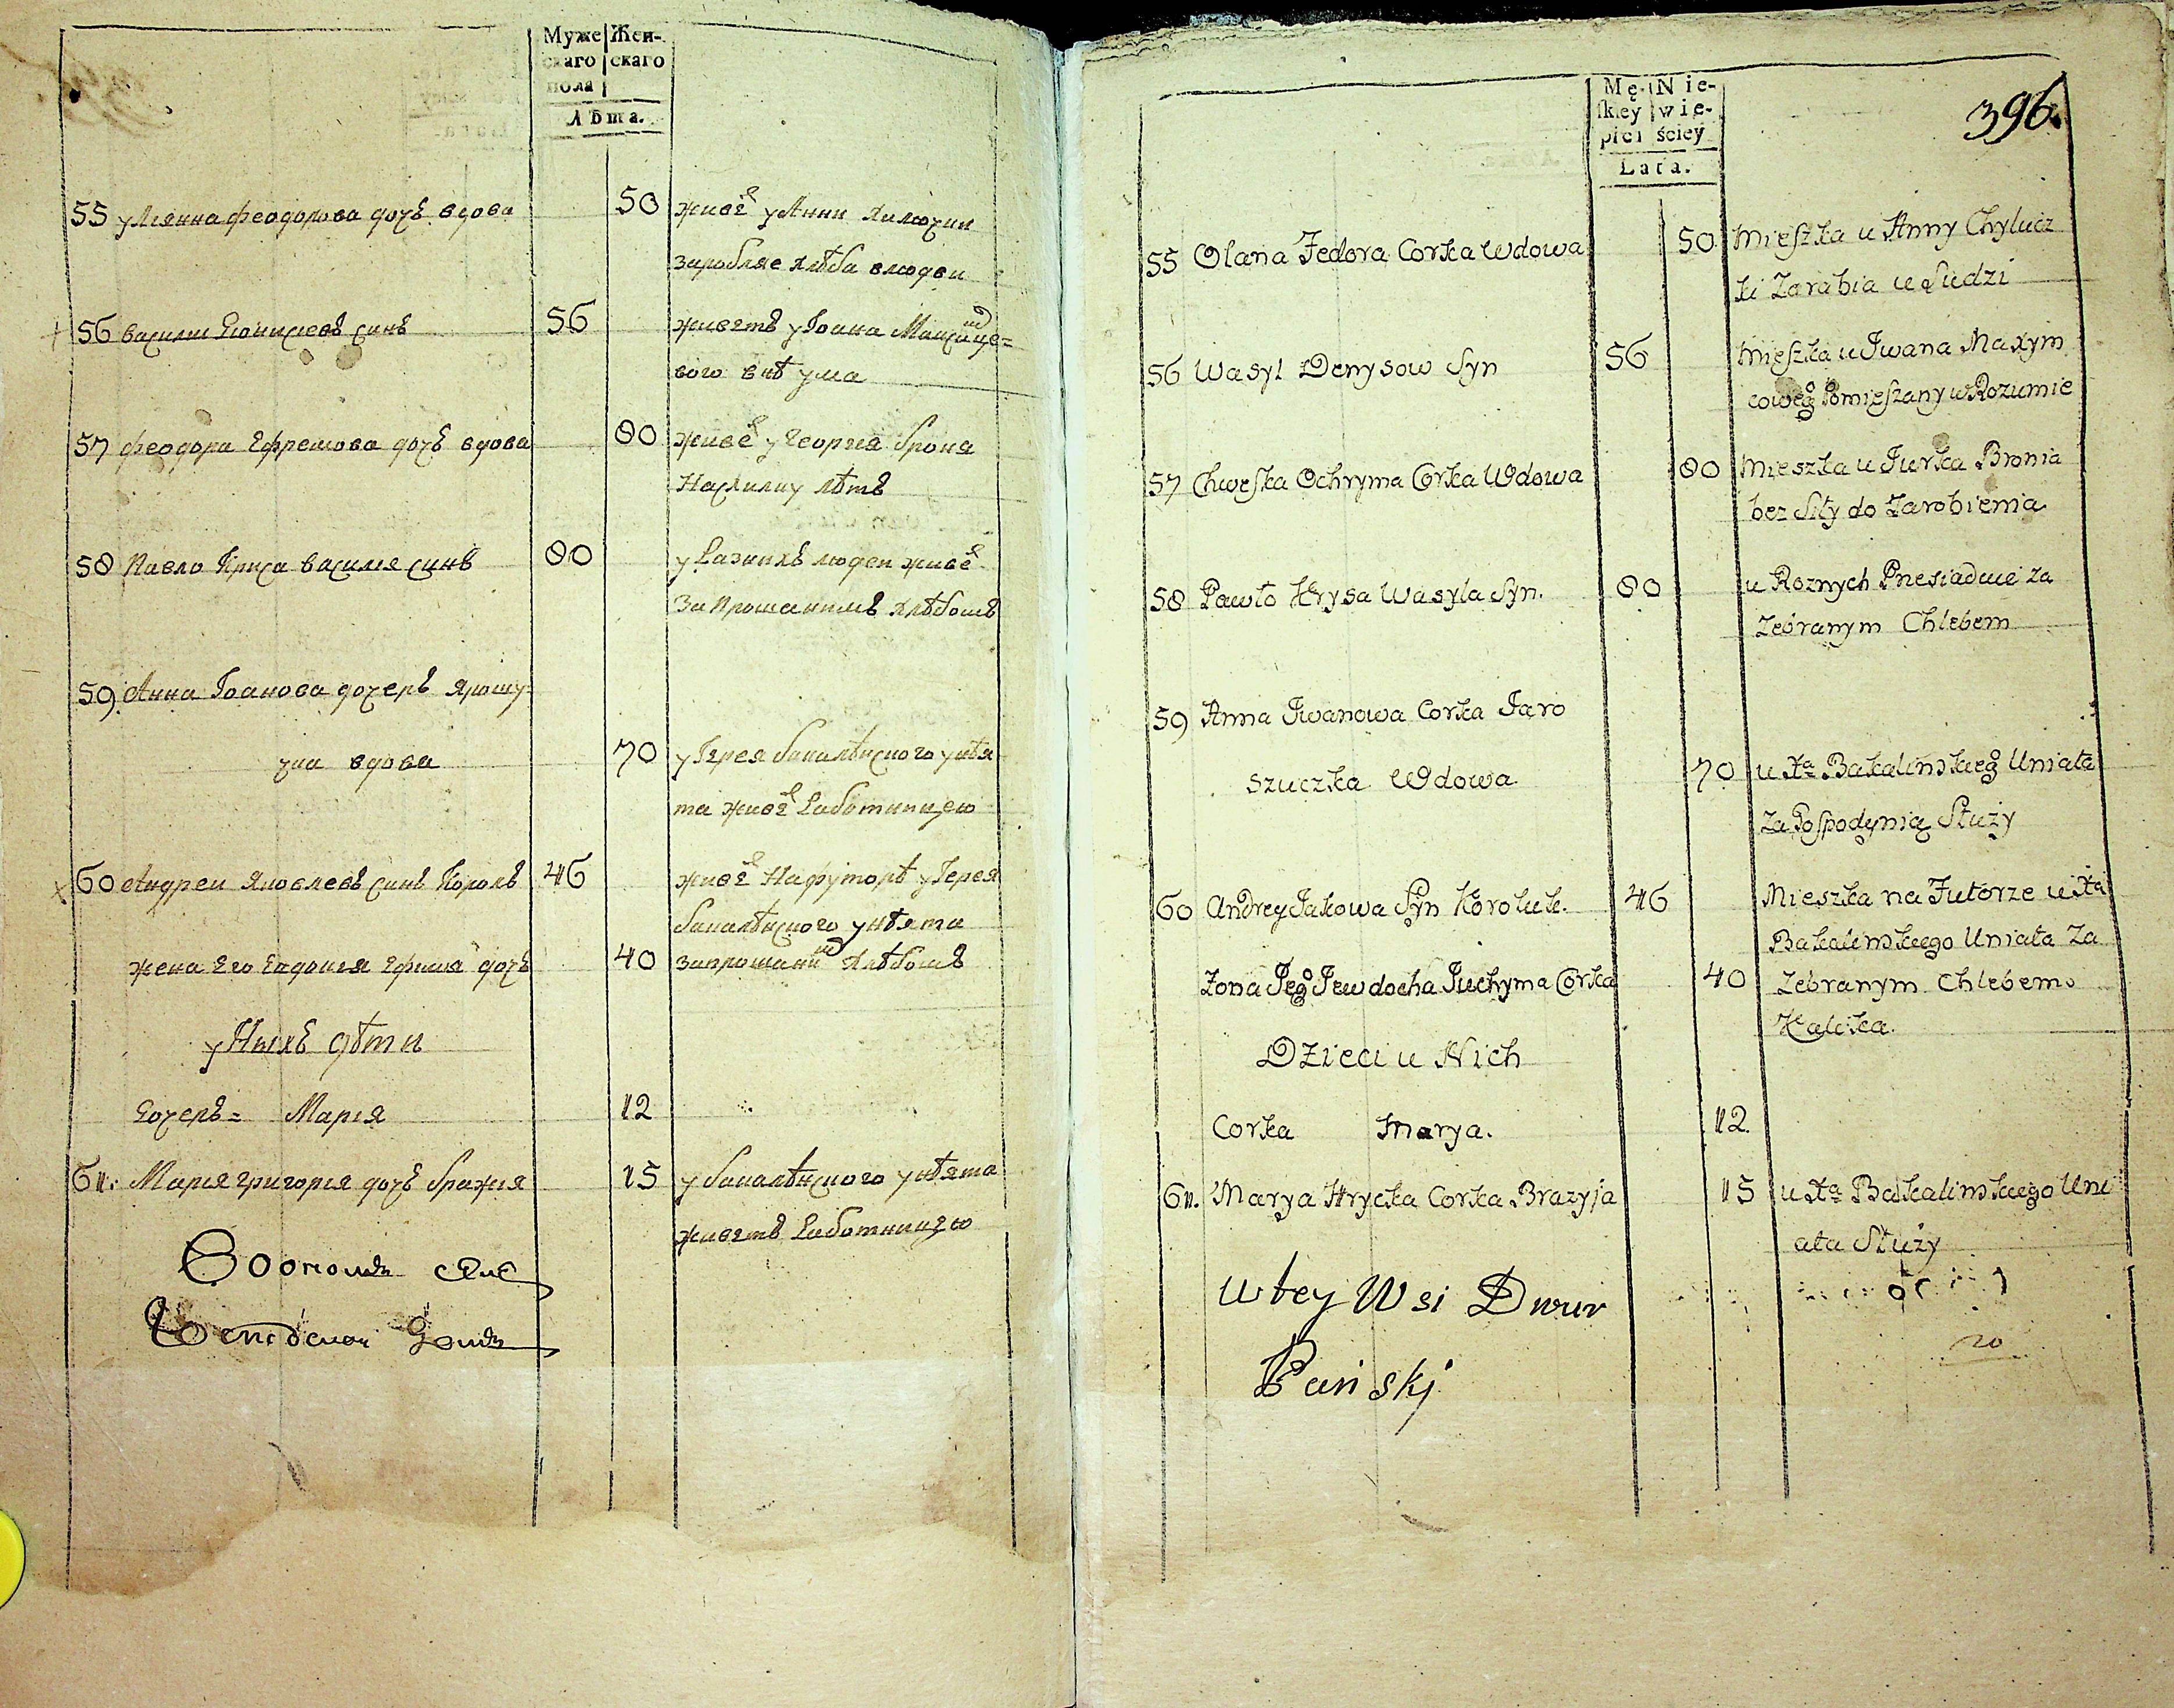 Муже Жен-
скаго скаго
пола
Лѣта.
55 уліянна феодорова дочъ вдова 50 живе у Анни хилючки
заробляе хлѣба влюдеи
56 василии Діонисіевъ синъ 56 живетъ у Іоана Максимце=
вого внѣ ума
57 феодора Ефремова дочъ вдова 80 живе у Георгія броня
58 Павло Криса василія синъ 80 у разнихъ людеи живе
за прошенимъ хлѣбомъ
59 Анна Іоанова дочеръ Ярошу=
чка вдова 70 у Іерея бакалѣнского унѣя
та живе работницею
60 Андреи Яковлевъ синъ Король 46 живе на футорѣ у Іерея
бакалѣнского унѣята
жена Его Евдокия Ефима дочъ 40 запрошеним хлѣбомъ
у Нихъ дѣти
Дочеръ= Марія 12
61. Марія григорія дочъ бражія 15 у бакалѣнского унѣята
живетъ работницею
Мę- Nie-
ſkiey wie-
płci ściey
Lata.
396.
55 Olana Fedora Corka Wdowa 50 Mieſzka u Anny Chylucz
ki Zarabia u Ludzi
56 Wasyl Denysow Syn 56 Mieſzka u Iwana Maxym
cowego Pomieſzany w Rozumie
57 Chweſka Ochryma Corka Wdowa 80 Mieszka u Jurka Bronia
bez Siły do Zarobienia
58 Pawło Krysa Wasyla Syn. 80 u Roznych Presiaduie za
Zebranym Chlebem
59 Anna Iwanowa Corka Jaro
szuczka Wdowa 70 u Xa Bakalinskiego Uniata
za Goſpodynią Służy
60 Andrey Jakowa Syn Koroluk. 46 Mieszka na Futorze u Xa
Bakalinskiego Uniata za
Żona Jego Jewdocha Juchyma Corka 40 Zebranym Chlebem
Kalika.
Dzieci u Nich
Corka Marya. 12.
61. Marya Hrycka Corka Brazyja 15 u Xa Bakalinskiego Uni
ata Służy
w tey Wsi Dwur
Pański
20